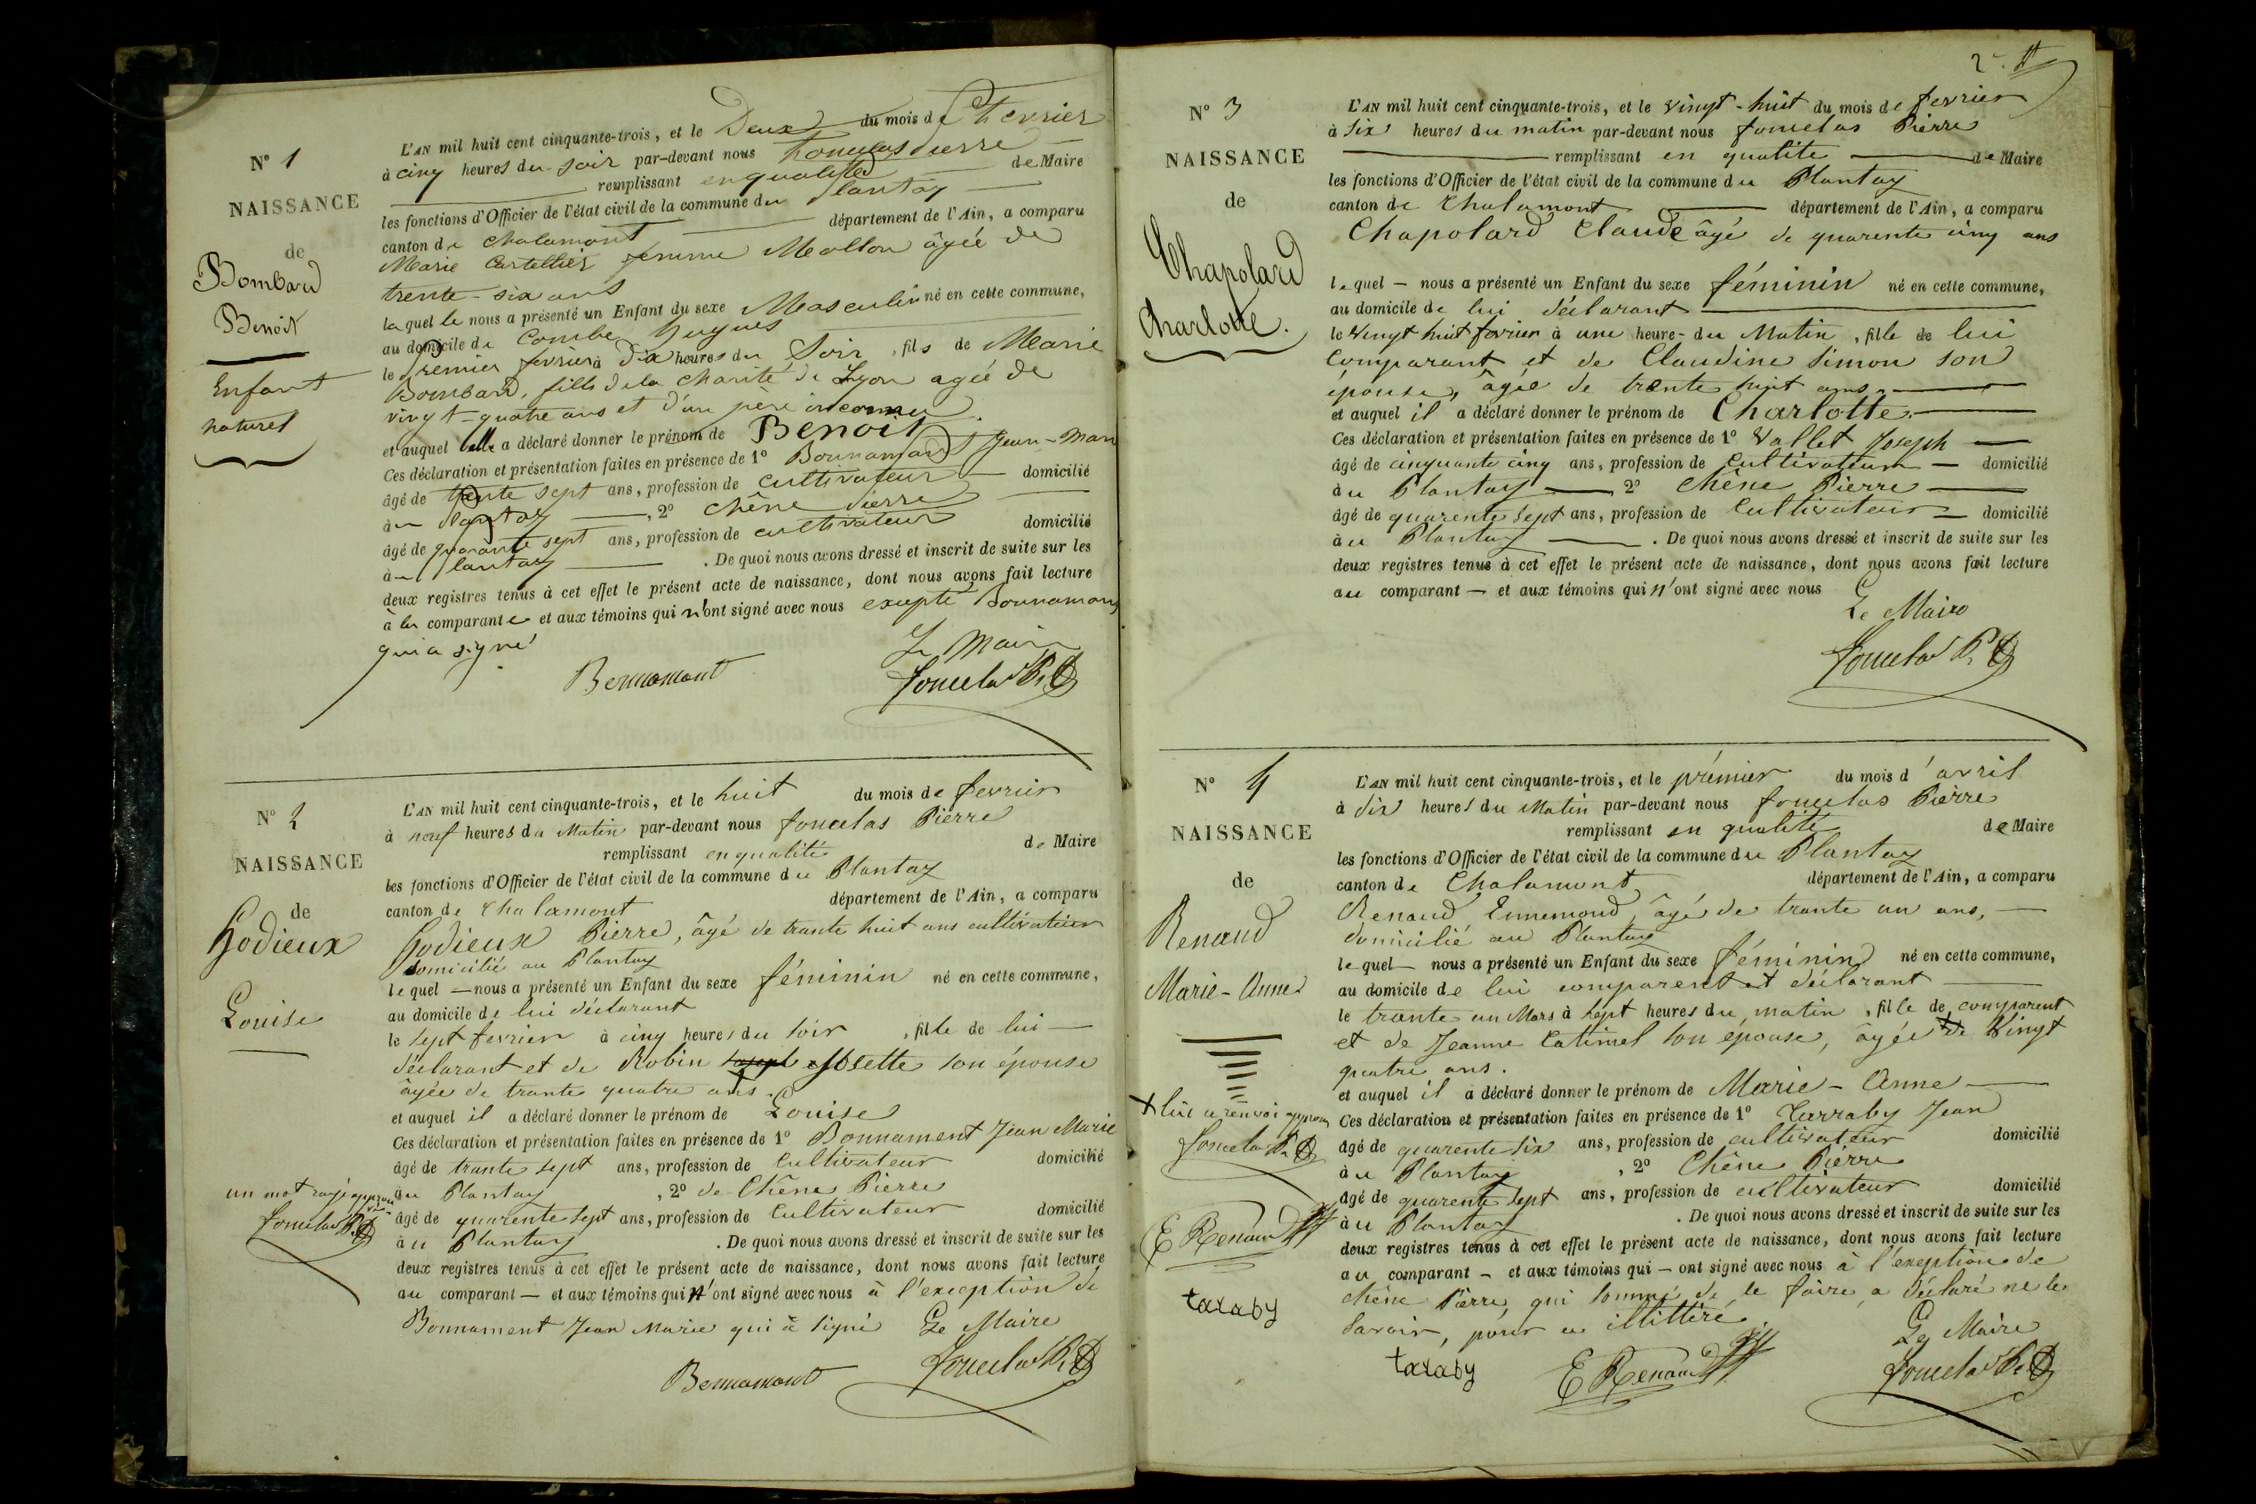 N° 1
NAISSANCE
de
Bombard
Benoît
Enfant
naturel
L'AN mil huit cent cinquante-trois, et le Deux du mois de fevrier
à cinq heures du soir par-devant nous fouilas Pierre
remplissant en qualité de Maire
les fonctions d'Officier de l'état civil de la commune du Plantay
canton de Chalamont département de l'Ain, a comparu
Marie Cartellier femme Meallon âgée de
trente-six ans
laquelle nous a présenté un Enfant du sexe Masculin né en cette commune,
au domicile de Combe hugues
le Premier fevrier à Dix heures du Soir, fils de Marie
Bombard, fille de la charité de Lyon agée de
vingt-quatre ans et d'un père inconnu
et auquel elle a déclaré donner le prénom de Benoit
Ces déclaration et présentation faites en présence de 1° Bonnamant Jean-Mari
âgé de trente sept ans, profession de cultivateur domicilié
au Plantay, 2° chêne Pierre
âgé de quarante sept ans, profession de cultivateur domicilié
au Plantay . De quoi nous avons dressé et inscrit de suite sur les
deux registres tenus à cet effet le présent acte de naissance, dont nous avons fait lecture
à la comparante et aux témoins qui n'ont signé avec nous excepté Bonnamant
qui a signé
Le Maire
Bonnamant
N° 2
NAISSANCE
de
Godieux
Louise
un mot rayé approuvé
L'AN mil huit cent cinquante-trois, et le huit du mois de fevrier
à neuf heures du Matin par-devant nous fouilas Pierre
remplissant en qualité de Maire
les fonctions d'Officier de l'état civil de la commune du Plantay
canton de Chalamont département de l'Ain, a comparu
Godieux Pierre, âgé de trante huit ans cultivateur
domicilié au Plantay
lequel — nous a présenté un Enfant du sexe féminin né en cette commune,
au domicile de lui déclarant
le sept fevrier à cinq heures du soir, fille de lui
déclarant et de Robin Josette son épouse
âgée de trante quatre ans.
et auquel il a déclaré donner le prénom de Louise
Ces déclaration et présentation faites en présence de 1° Bonnament Jean Marie
âgé de trante sept ans, profession de Cultivateur domicilié
au Plantay, 2° de Chêne Pierre
âgé de quarente sept ans, profession de Cultivateur domicilié
au Plantay . De quoi nous avons dressé et inscrit de suite sur les
deux registres tenus à cet effet le présent acte de naissance, dont nous avons fait lecture
au comparant — et aux témoins qui n'ont signé avec nous à l'exception de
Bonnament Jean Marie qui à signé Le Maire
Bonnamant
N° 3
NAISSANCE
de
Chapolard
Charlotte.
L'AN mil huit cent cinquante-trois, et le vingt-huit du mois de fevrier
à six heures du matin par-devant nous fouilas Pierre
remplissant en qualité de Maire
les fonctions d'Officier de l'état civil de la commune du Plantay
canton de Chalamont département de l'Ain, a comparu
Chapolard Claude âgé de quarente cinq ans
lequel — nous a présenté un Enfant du sexe féminin né en cette commune,
au domicile de lui déclarant
le Vingt huit fevrier à une heure du Matin, fille de lui
Comparant et de Claudine Simon son
épouse, âgée de trente huit ans,
et auquel il a déclaré donner le prénom de Charlotte.
Ces déclaration et présentation faites en présence de 1° Vallet Joseph
âgé de cinquante cinq ans, profession de Cultivateur domicilié
au Plantay 2° Chêne Pierre
âgé de quarente sept ans, profession de Cultivateur domicilié
au Plantay . De quoi nous avons dressé et inscrit de suite sur les
deux registres tenus à cet effet le présent acte de naissance, dont nous avons fait lecture
au comparant — et aux témoins qui n'ont signé avec nous
Le Maire
N° 4
NAISSANCE
de
Renaud
Marie-Anne
+ lui a renvoi approuvé
E Renaud
taraby
L'AN mil huit cent cinquante-trois, et le prémier du mois d'avril
à dix heures du Matin par-devant nous fouilas Pierre
remplissant en qualité de Maire
les fonctions d'Officier de l'état civil de la commune du Plantay
canton de Chalamont département de l'Ain, a comparu
Renaud Ennemond, âgé de trante un ans,
domicilié au Plantay
lequel — nous a présenté un Enfant du sexe féminin né en cette commune,
au domicile de lui comparent et déclarant
le trante un Mars à sept heures du matin, fille de + comparent
et de Jeanne Catimel son épouse, âgée de Vingt
quatre ans.
et auquel il a déclaré donner le prénom de Marie-Anne
Ces déclaration et présentation faites en présence de 1° Tarraby Jean
âgé de quarente six ans, profession de cultivateur domicilié
au Plantay, 2° Chêne Pierre
âgé de quarente sept ans, profession de cultivateur domicilié
au Plantay . De quoi nous avons dressé et inscrit de suite sur les
deux registres tenus à cet effet le présent acte de naissance, dont nous avons fait lecture
au comparant — et aux témoins qui — ont signé avec nous à l'exeption de
chêne Pierre, qui sommé de le faire, a déclaré ne le
Savoir, pour illittéré.
Le Maire
taraby E Renaud